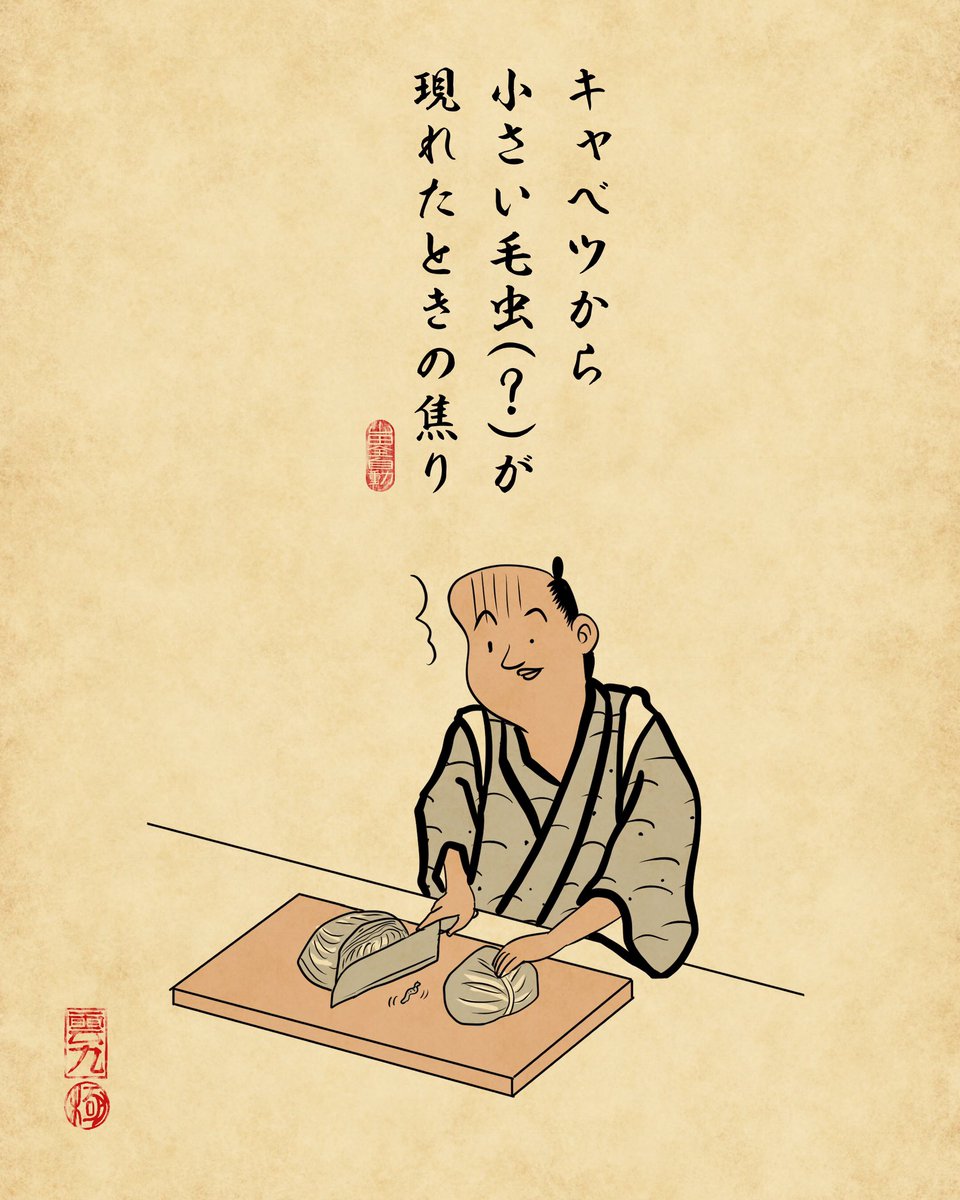 キャベツから
小さい毛虫(?)が
現れたときの焦り